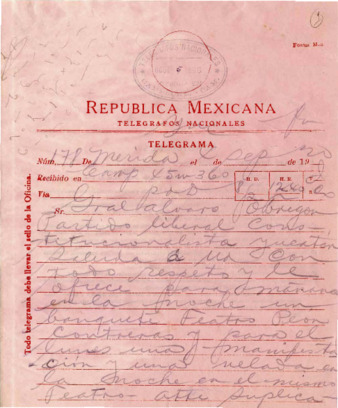 Forma No.
REPUBLICA MEXICANA
TELEGRAFOS NACIONALES
TELEGRAMA
Núm. 178 De Merida el 4 de Sep de 1920
Recibido en Camp 45 w 360
H. D. H. R.
Vía PxD
Sr. Gral Alvaro Obregon
Partido liberal Cons
titucionalista yucatan
Saluda a Ud Con
todo respeto y le
ofrece para mañana
en la noche un
banquete Teatro Peon
Contreras y para el
lunes una manifesta
ción y una velada en
la noche en el mismo
Teatro. Atte Suplica
Todo telegrama debe llevar el sello de la Oficina.